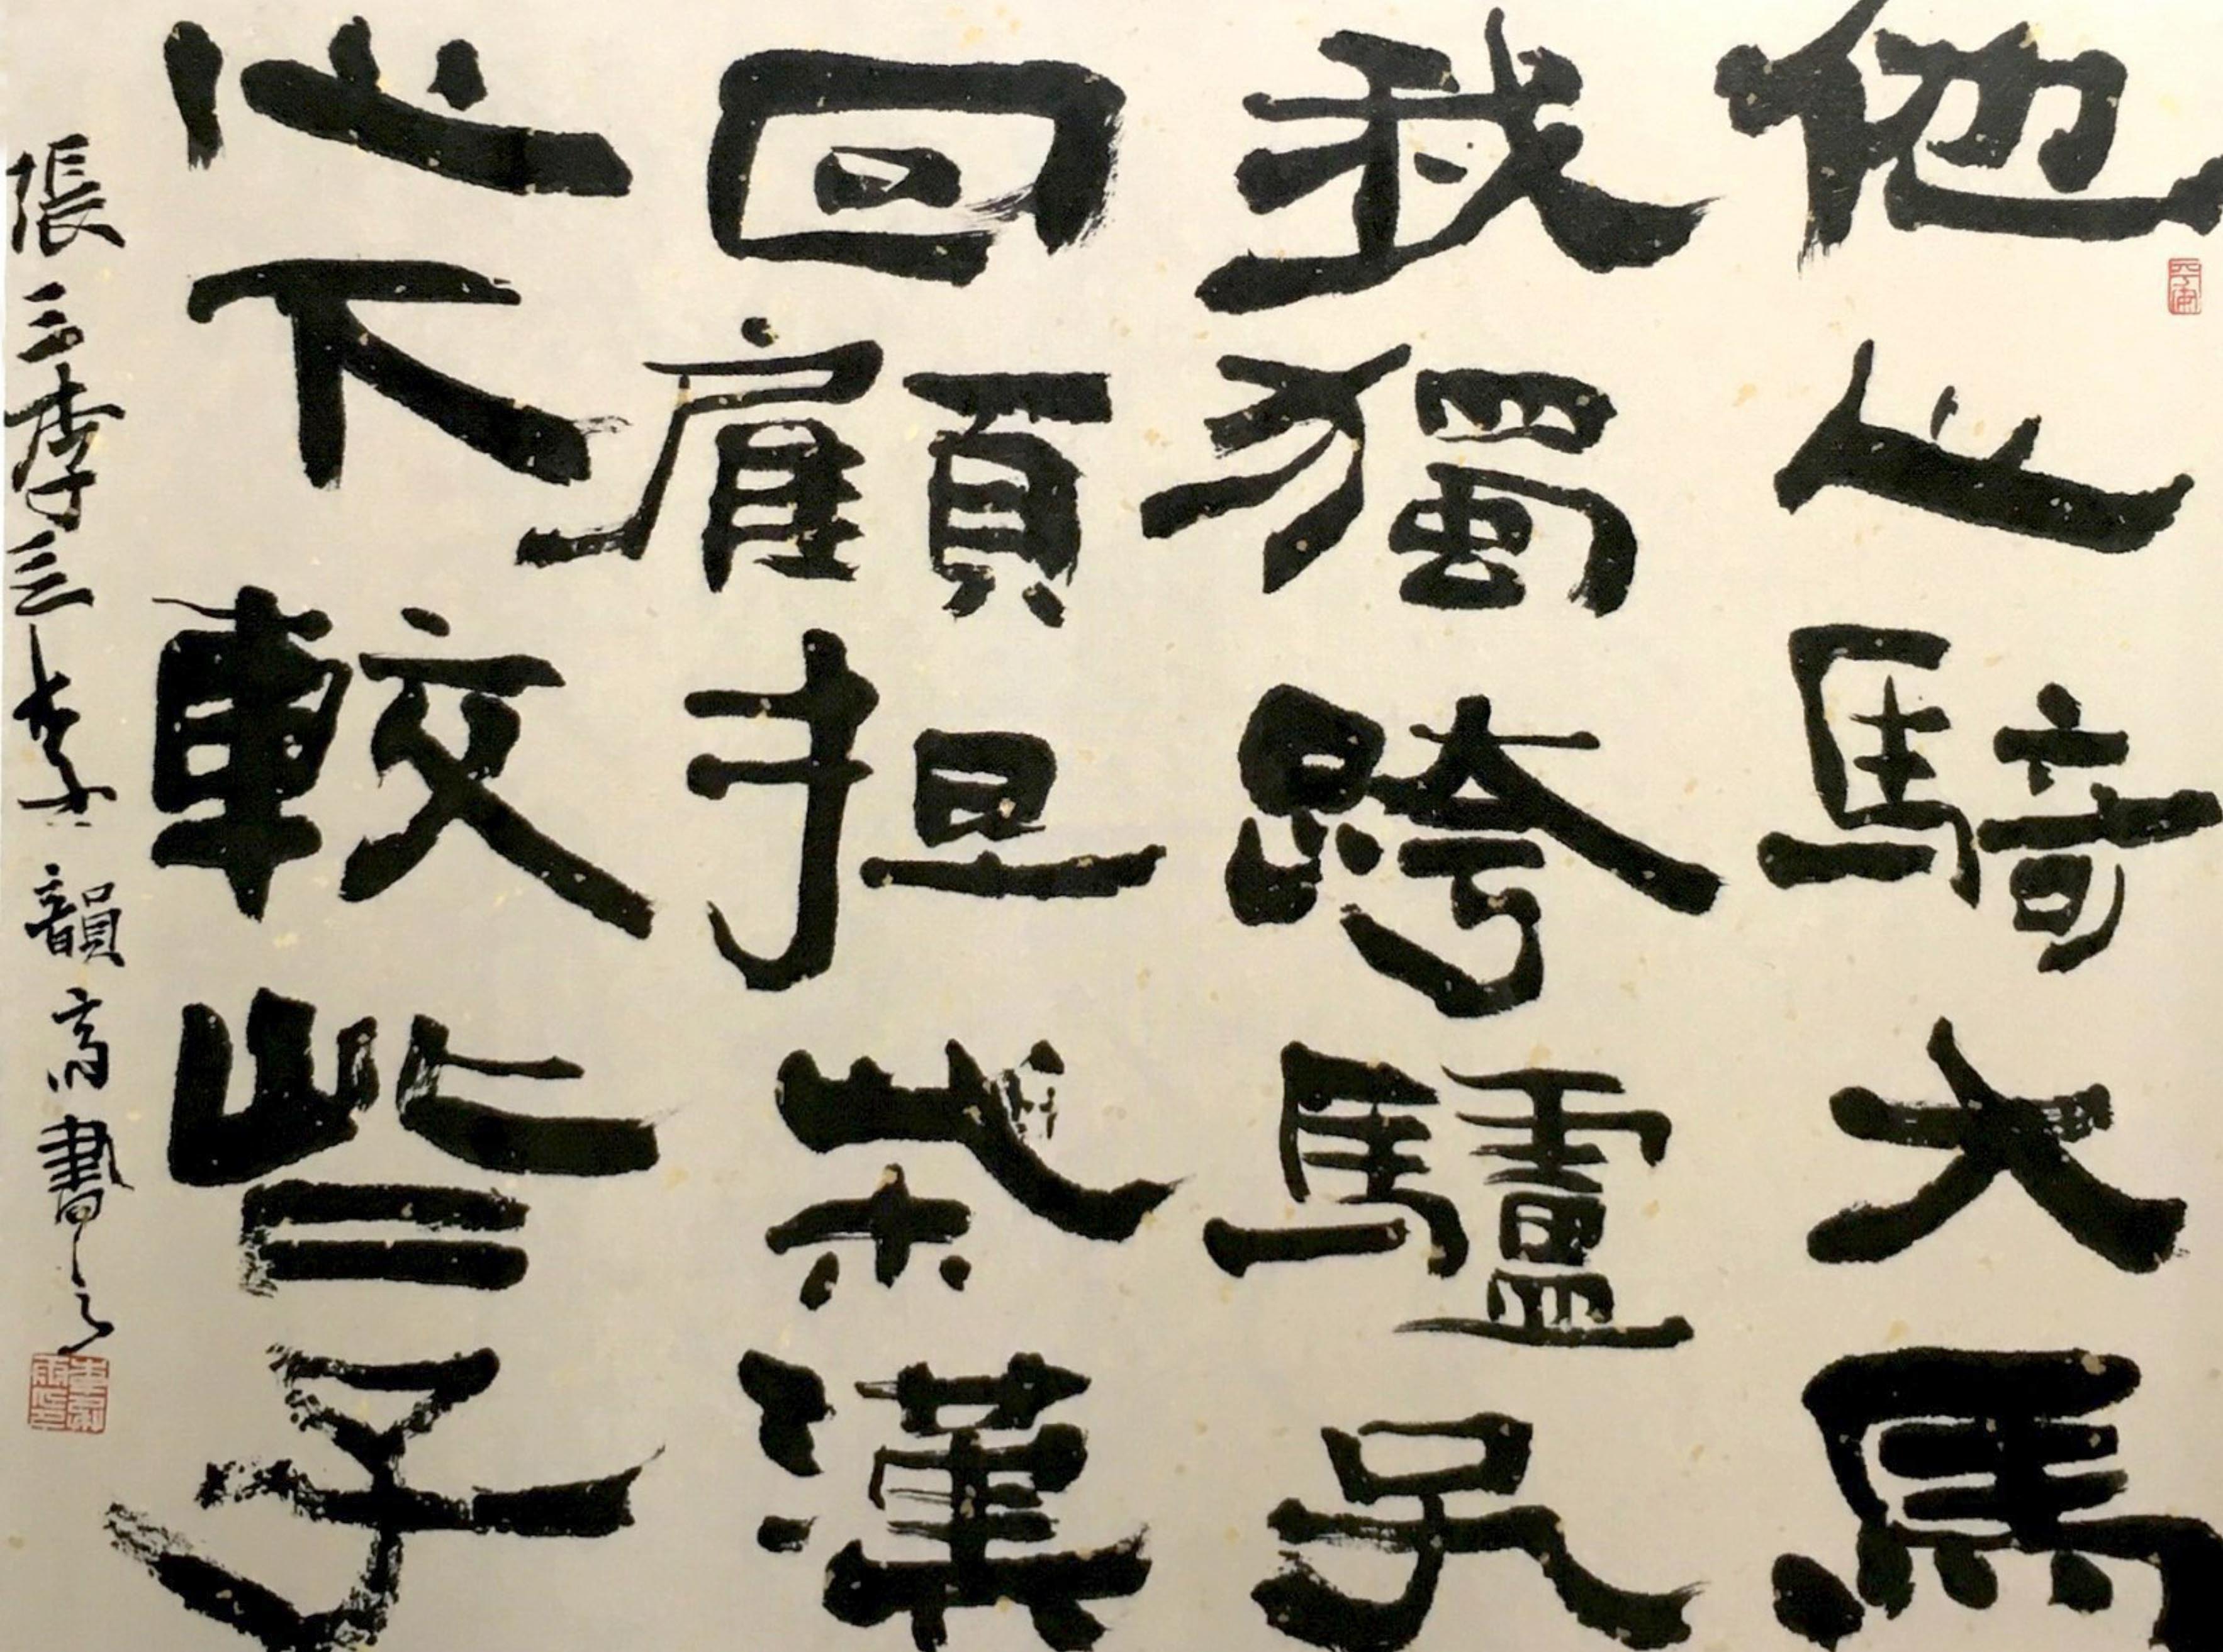 他人騎大馬
我獨跨驢子
回顧担柴漢
心下較些子
張三李三 韻高書之